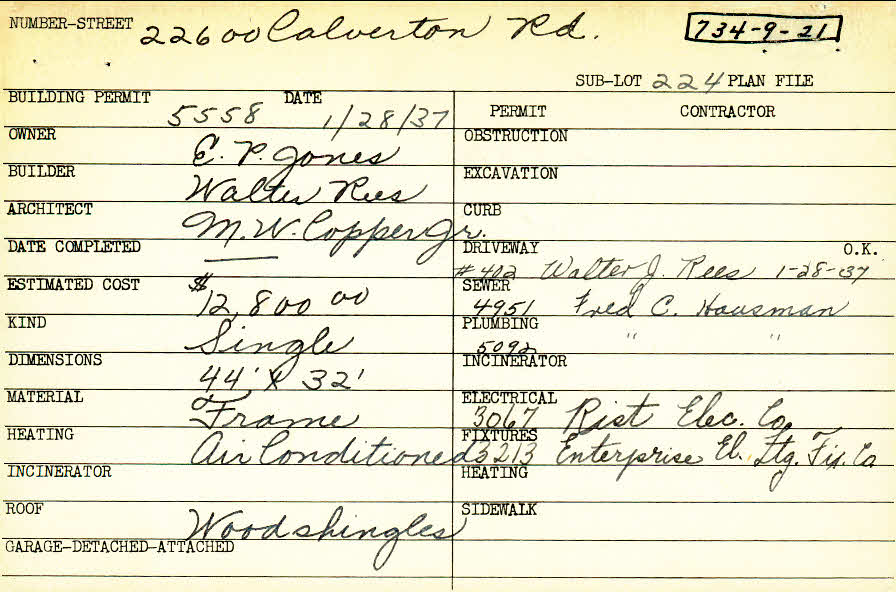 NUMBER-STREET 22600 Calverton Rd. 734-9-21
SUB-LOT 224 PLAN FILE
BUILDING PERMIT 5558 DATE 1/28/37
PERMIT CONTRACTOR
OWNER E. P. Jones
OBSTRUCTION
BUILDER Walter Rees
EXCAVATION
ARCHITECT M. W. Copper Jr.
CURB
DATE COMPLETED —
DRIVEWAY O.K.
#402 Walter J. Rees 1-28-37
ESTIMATED COST $12,800 00
SEWER
4951 Fred C. Hausman
KIND Single
PLUMBING
5092 " "
DIMENSIONS 44' X 32'
INCINERATOR
MATERIAL Frame
ELECTRICAL
3067 Rist Elec. Co.
HEATING Air Conditioned
FIXTURES
3213 Enterprise El. Ltg. Fix. Co
INCINERATOR
HEATING
ROOF Wood shingles
SIDEWALK
GARAGE-DETACHED-ATTACHED